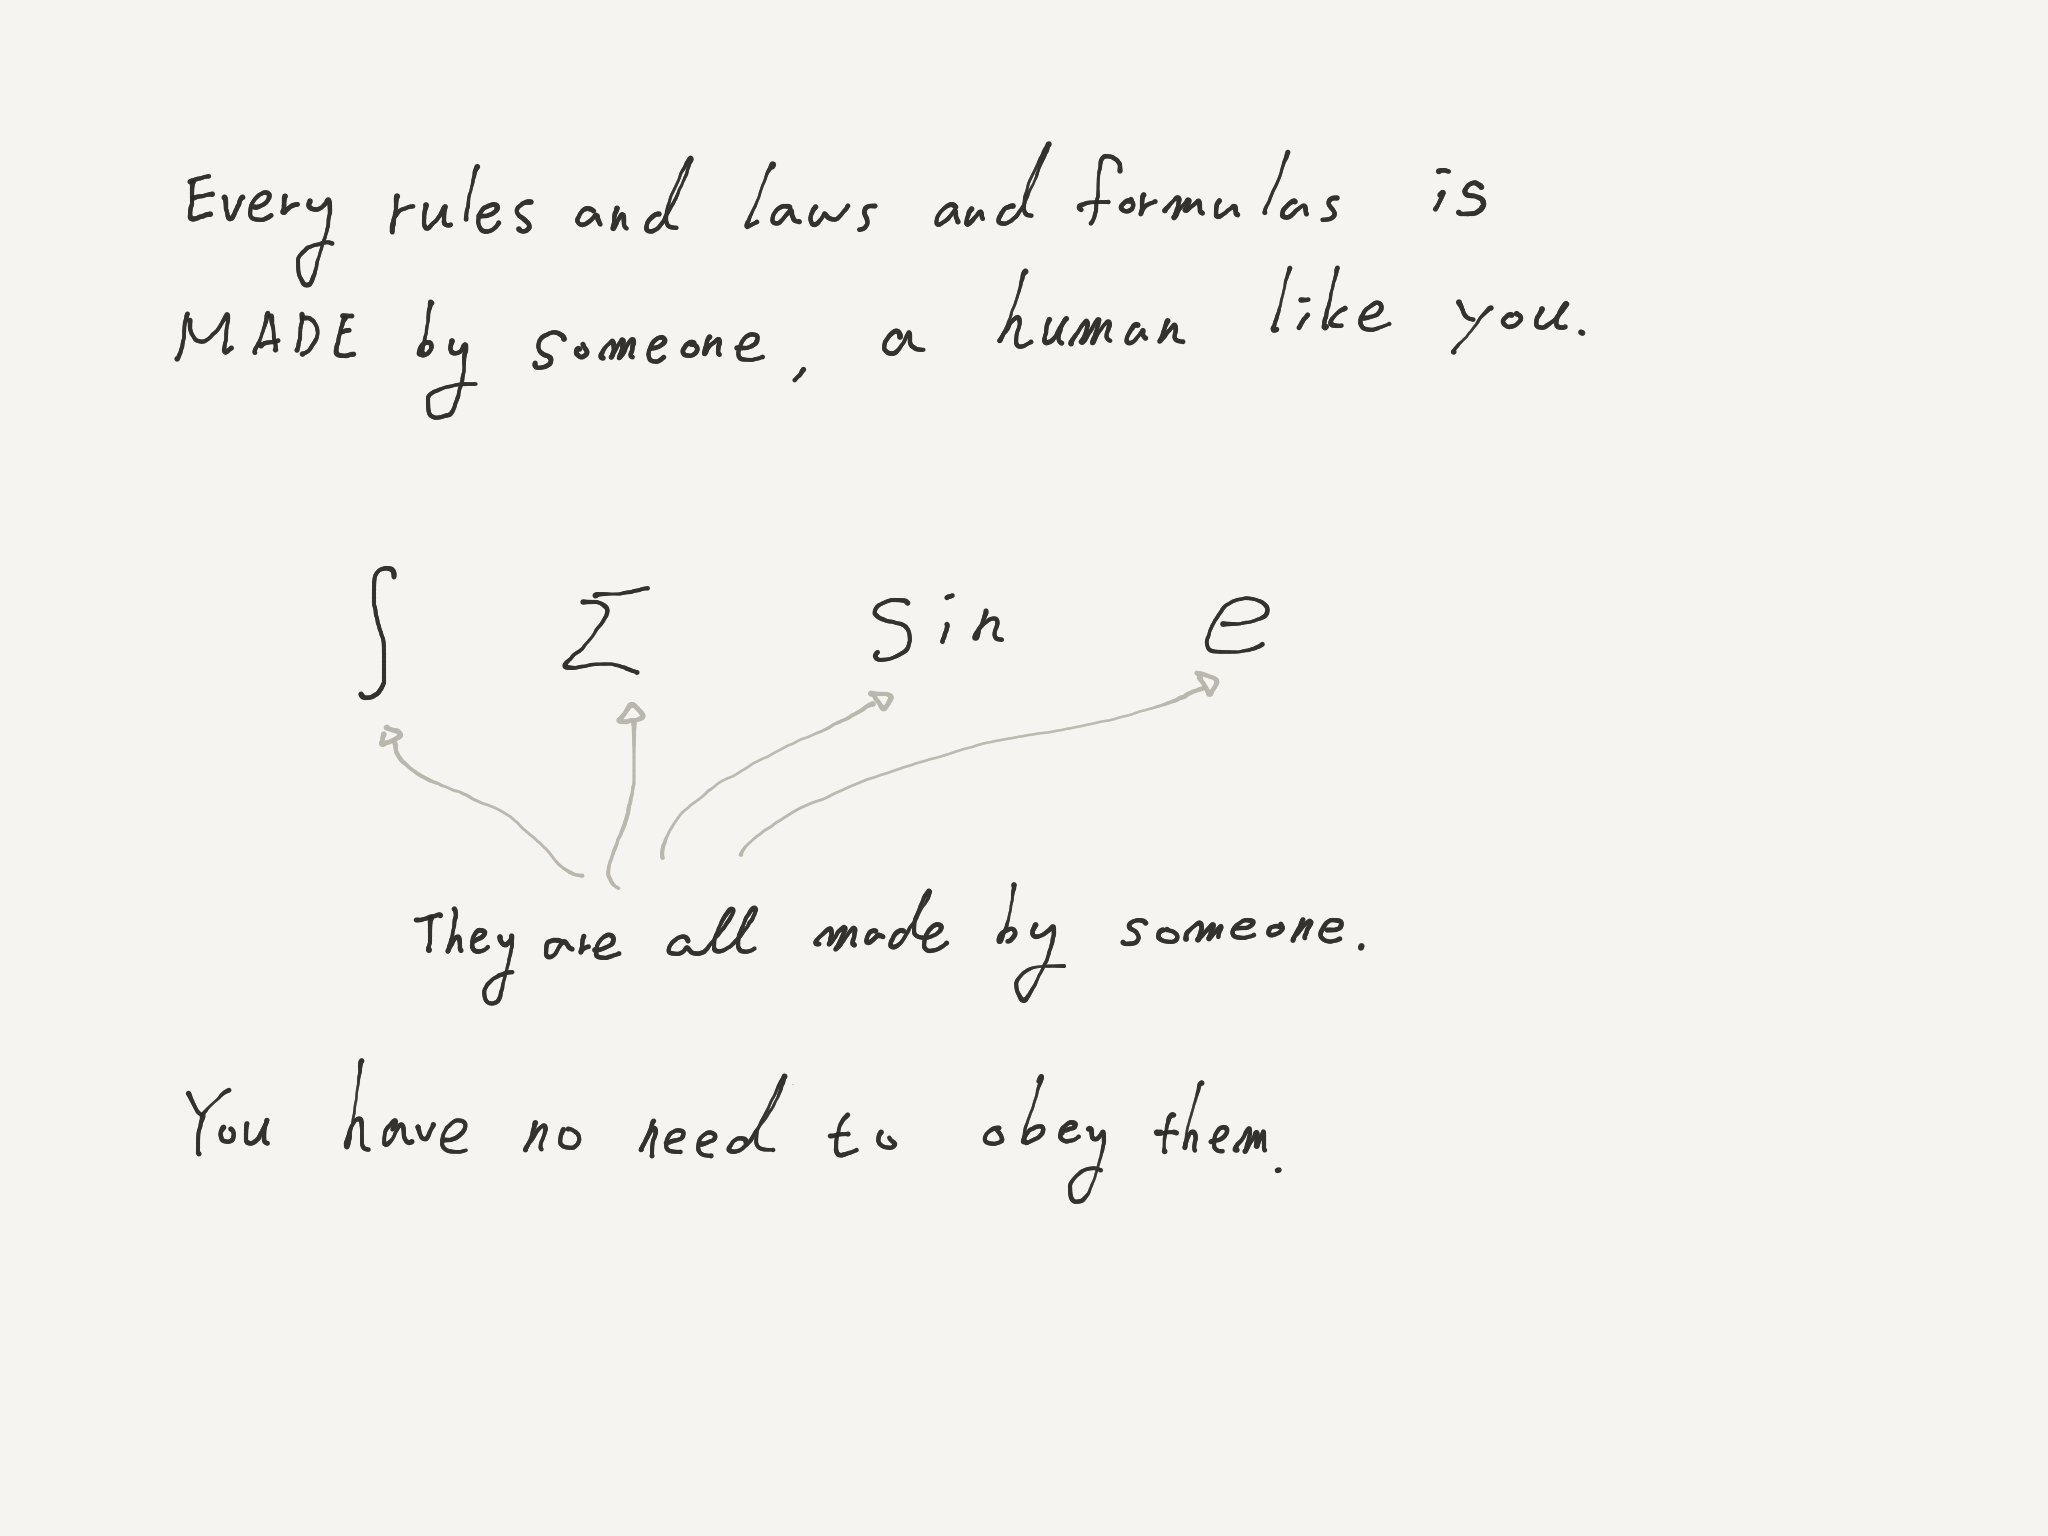 Every rules and laws and formulas is
MADE by someone, a human like you.
∫ Σ sin e
They are all made by someone.
You have no need to obey them.